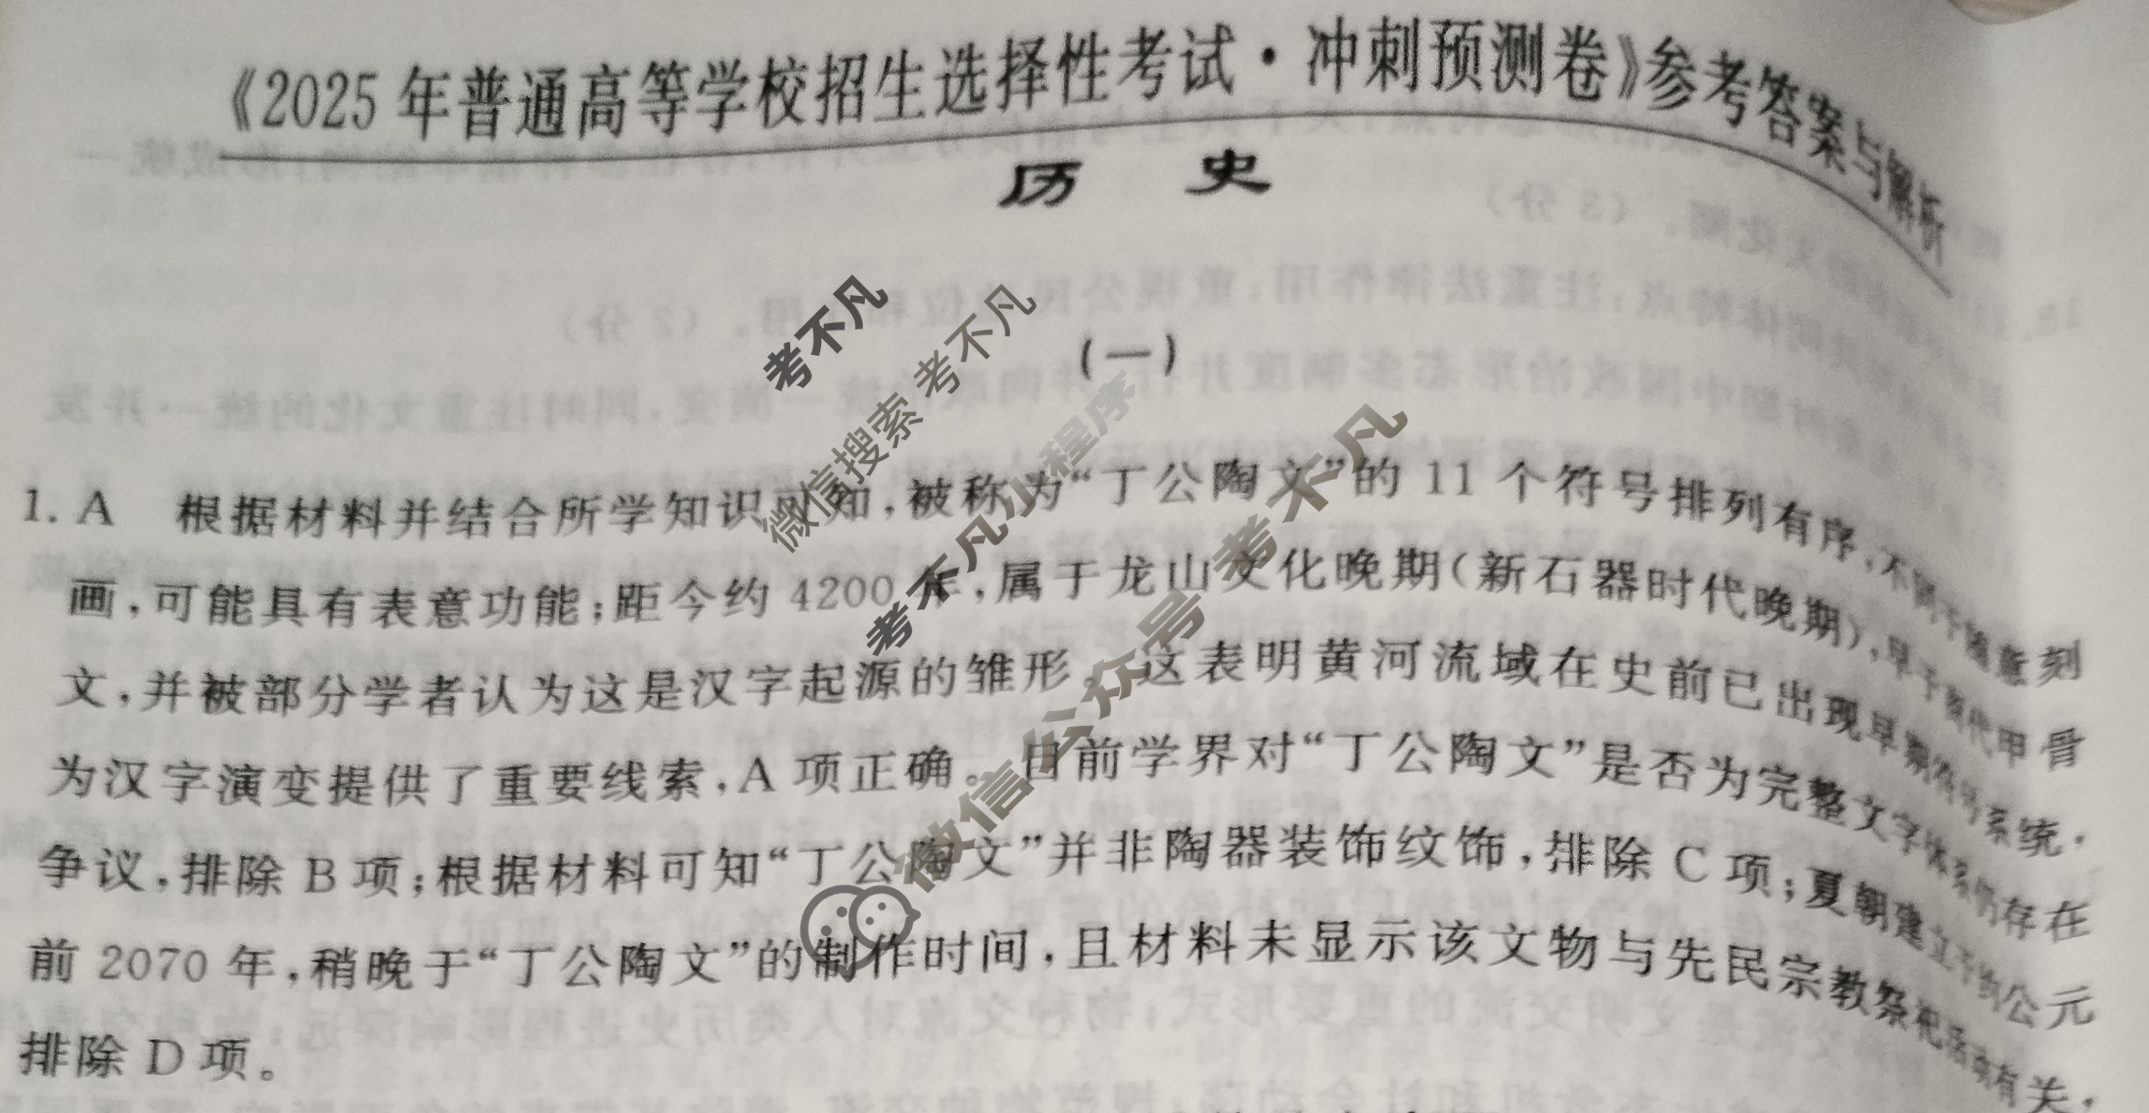 《2025年普通高等学校招生选择性考试·冲刺预测卷》参考答案与解析
历 史
(一)
1. A 根据材料并结合所学知识可知,被称为“丁公陶文”的11个符号排列有序,不同于随意刻
画,可能具有表意功能;距今约4200年,属于龙山文化晚期(新石器时代晚期),早于商代甲骨
文,并被部分学者认为这是汉字起源的雏形。这表明黄河流域在史前已出现早期符号系统,
为汉字演变提供了重要线索,A项正确。目前学界对“丁公陶文”是否为完整文字体系仍存在
争议,排除B项;根据材料可知“丁公陶文”并非陶器装饰纹饰,排除C项;夏朝建立于约公元
前2070年,稍晚于“丁公陶文”的制作时间,且材料未显示该文物与先民宗教祭祀活动有关,
排除D项。
考不凡
微信搜索 考不凡
考不凡小程序
微信公众号 考不凡